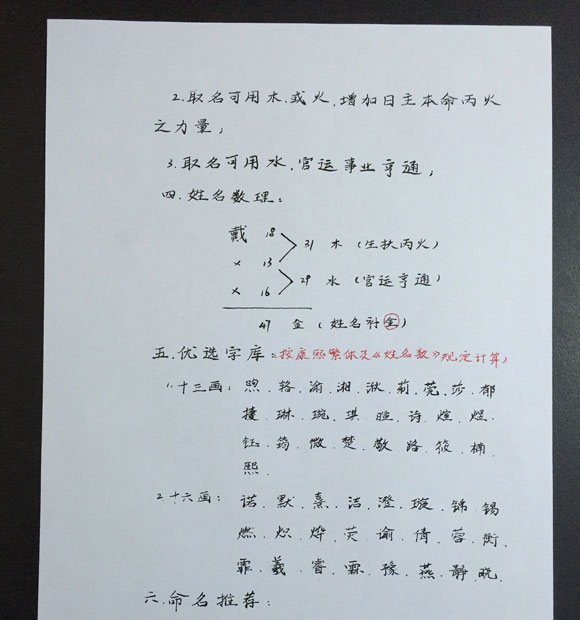 2.取名可用木.或火,增加日主本命丙火
之力量;
3.取名可用水,官运事业亨通;
四.姓名数理:
戴 18
31 木 (生扶丙火)
× 13
29 水 (官运亨通)
× 16
47 金 (姓名补金)
五.优选字库:按康熙繁体及《姓名数》规定计算)
1.十三画: 煦.辂.渝.湘.湫.莉.莞.莎.郁
琳.琬.琪.暄.诗.煊.煜.
钰.筠.微.楚.敬.路.筱.楠.
熙.
2.十六画: 诺.默.熹.洁.澄.璇.锦.锡
燃.炽.烨.荧.谕.倩.蓉.衡.
霏.羲.睿.霖.豫.燕.静.晓.
六.命名推荐: